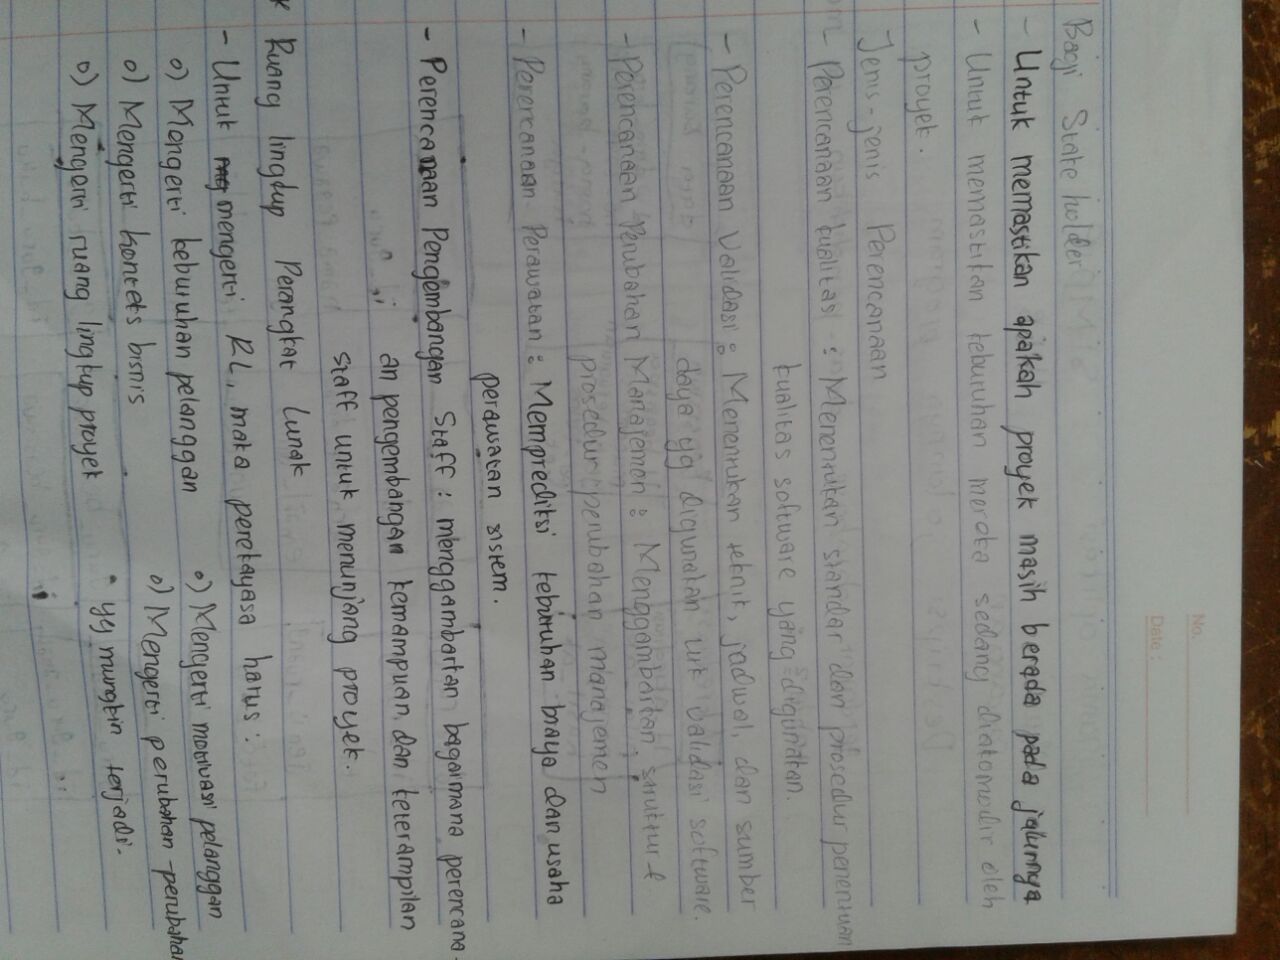 No.
Date :
Bagi Stake holder
- Untuk memastikan apakah proyek masih berada pada jalurnya
- Untuk memastikan kebutuhan mereka sedang diakomodir oleh
proyek.
Jenis-jenis Perencanaan
- Perencanaan kualitas : Menentukan standar dan prosedur penentuan
kualitas software yang digunakan.
- Perencanaan Validasi : Menentukan teknik, jadwal, dan sumber
daya yg digunakan utk validasi software.
- Perencanaan Perubahan Manajemen : Menggambarkan struktur &
prosedur perubahan manajemen
- Perencanaan Perawatan : Memprediksi kebutuhan biaya dan usaha
perawatan sistem.
- Perencanaan Pengembangan Staff : menggambarkan bagaimana perencana-
an pengembangan kemampuan dan keterampilan
staff untuk menunjang proyek.
Ruang lingkup Perangkat Lunak
- Untuk mengerti RL, maka perekayasa harus :
o) Mengerti kebutuhan pelanggan
o) Mengerti motivasi pelanggan
o) Mengerti konteks bisnis
o) Mengerti perubahan-perubahan
o) Mengerti ruang lingkup proyek
• yg mungkin terjadi.